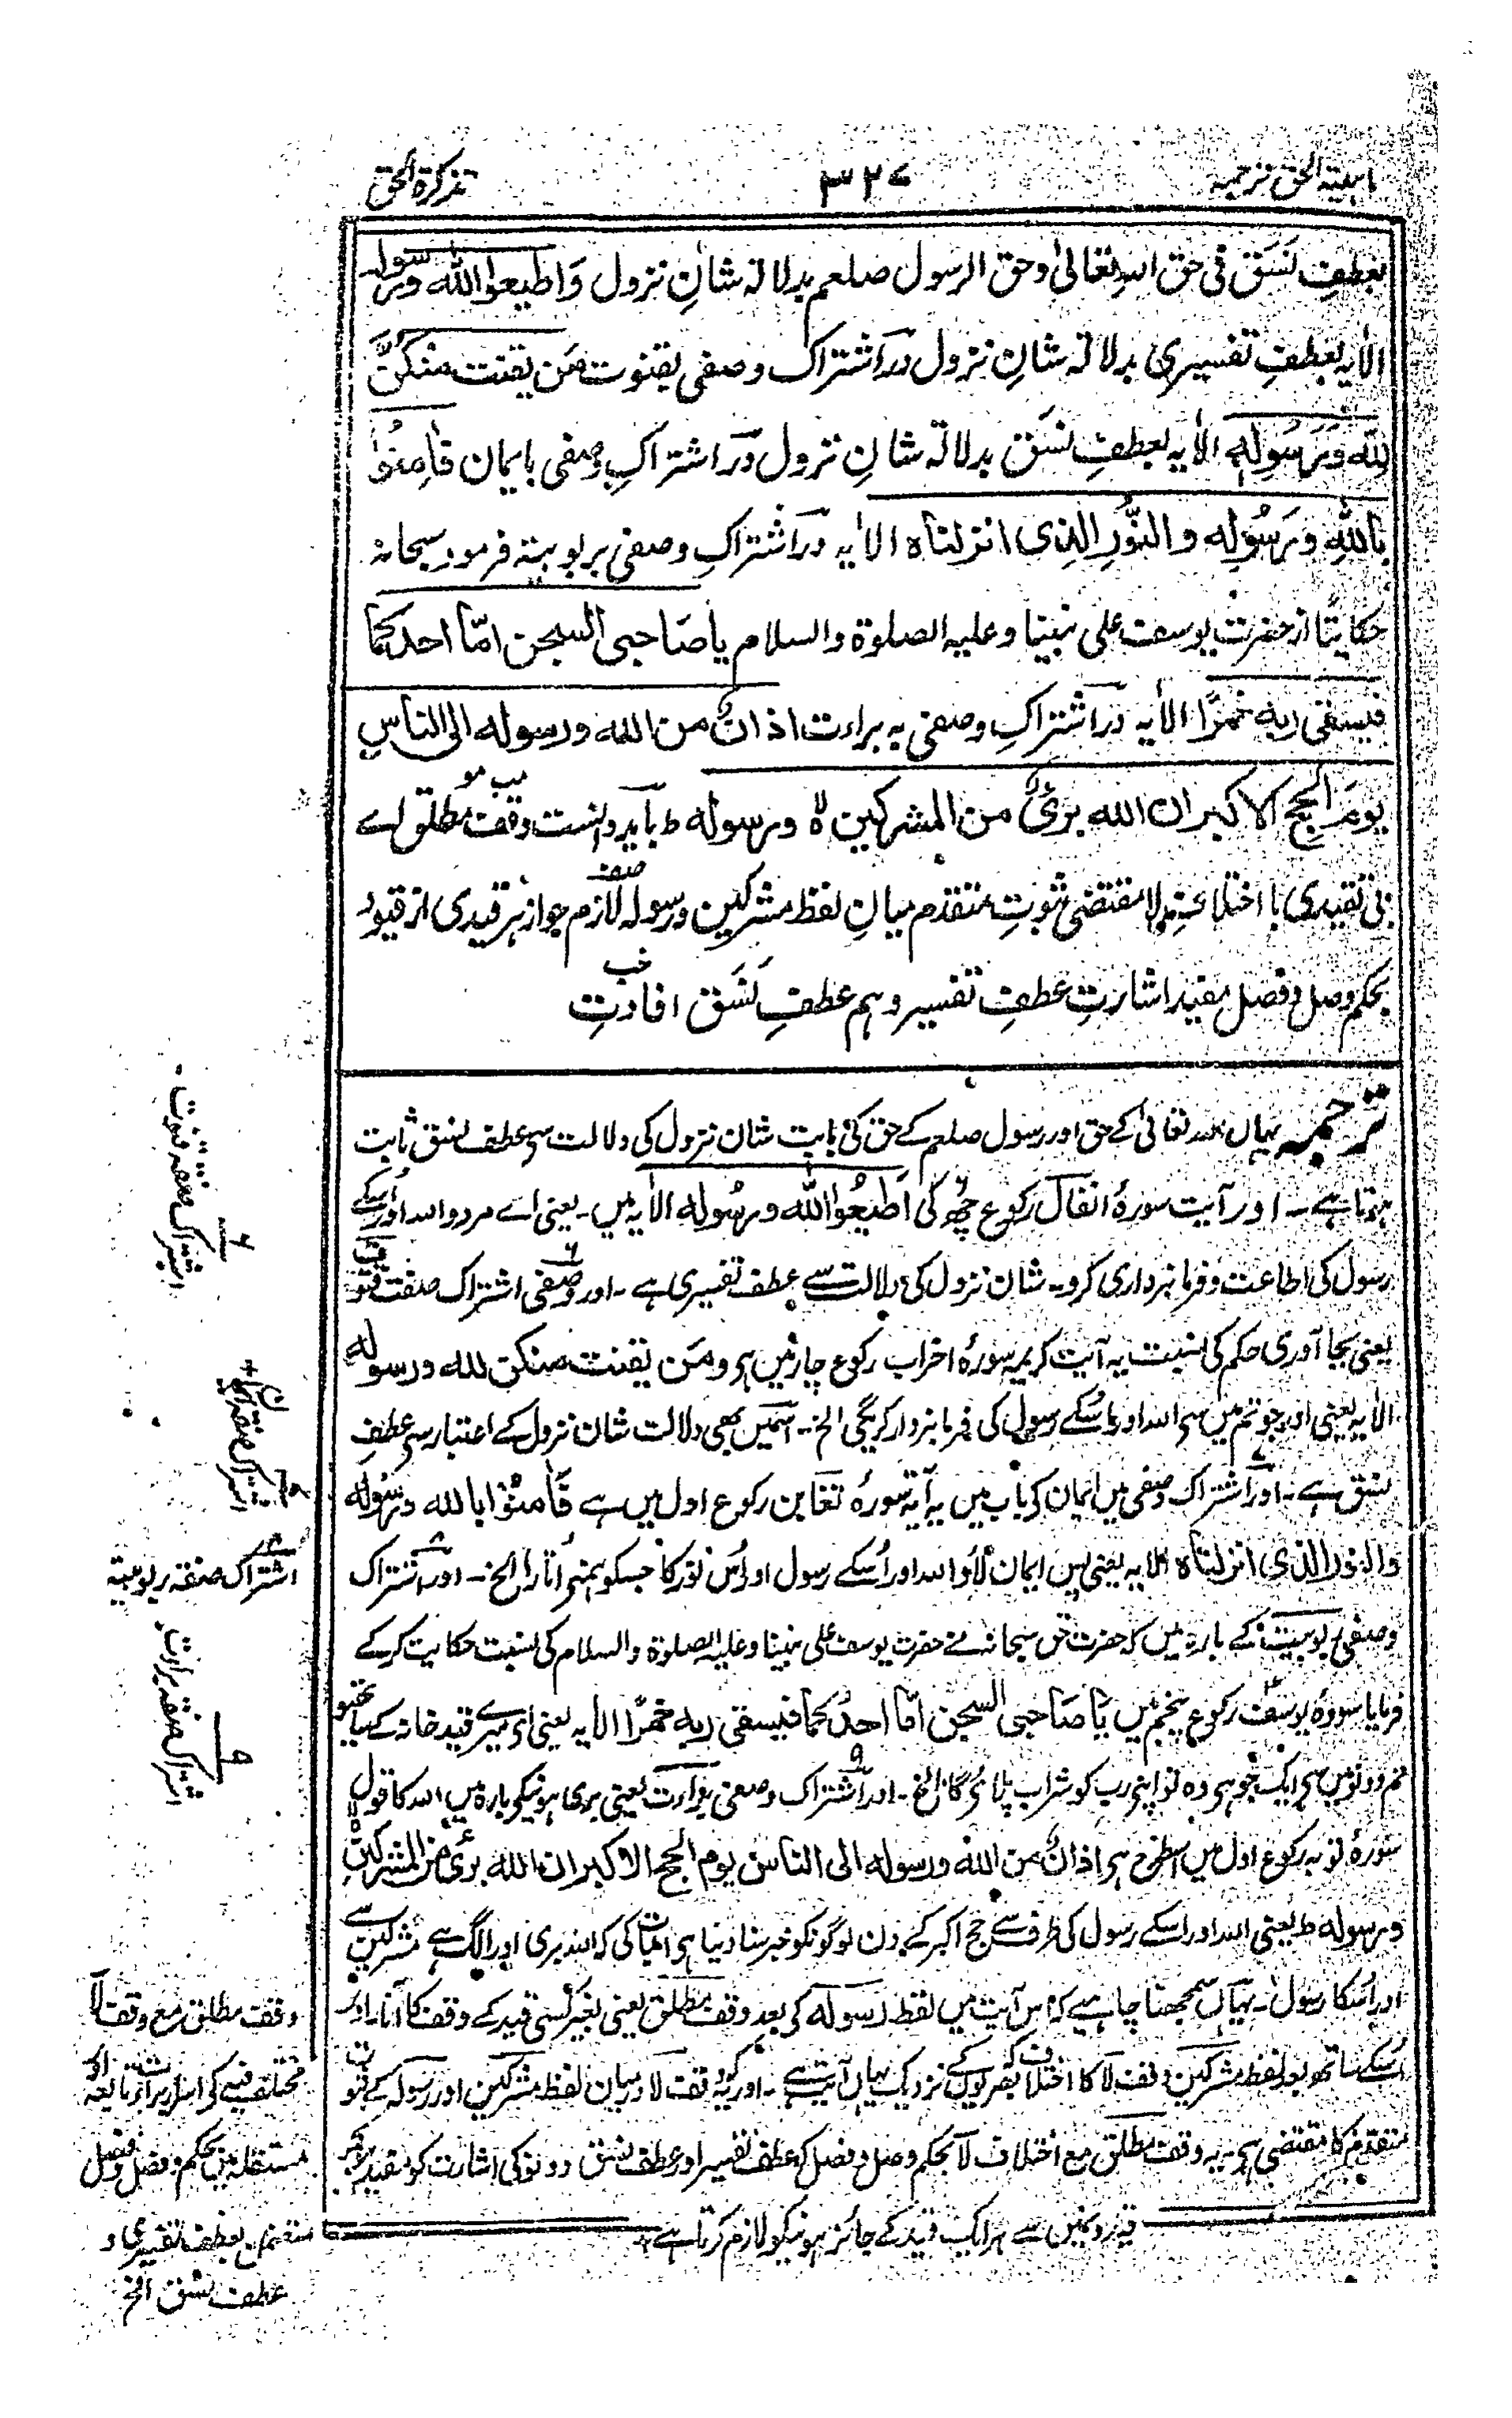 ابنیۃ الحق ترجمہ
۳۲۷
تذکرۃ الحق
بعطفِ نَسَق فی حق اللہِ تعالیٰ وحق الرسول صلعم بدلالۃ شانِ نزول وَاَطیعوا اللہ ورسولہ
الاٰیہ بعطفِ تفسیری بدلالۃ شانِ نزول درَاشتراک وصفی بقنوت مَن یقنت منکنَّ
لِلّٰہ وَرَسُولِہٖ الاٰیہ بعطفِ نَسَق بدلالۃ شانِ نزول درَاشتراکِ وصفی بایمان فَاٰمِنُوا
بِاللّٰہِ وَرَسُوْلِہ والنُّوْرِ الَّذِی انزلناہ الاٰیہ درَاشتراکِ وصفی بربوبیتہ فرمود سبحانہ
حکایتًا از حضرت یوسف علی نبینا وعلیہ الصلوۃ والسلام یا صَاحبی السجن امّا احدکما
فیسقی ربہ خمرًا الاٰیہ درَاشتراکِ وصفی بہ براءت اذانٌ من اللہ ورسولہ الی الناسِ
یومَ الحج الاکبر ان اللہ برئٌ من المشرکین لا ورسولہ ط باید دانست وقف مطلق اے
بی تقیدی با اختلافِ لا مقتضی ثبوتِ متقدم میانِ لفظ مشرکین ورسولہ لازم جواز ہر قیدی از قیود
بحکم وصل وفصل مفید اشارتِ عطفِ تفسیر وہم عطفِ نَسَق افادتِ
ترجمہ یہاں اللہ تعالیٰ کے حق اور رسول صلعم کے حق کی بابت شان نزول کی دلالت سے عطف نسق ثابت
ہوتا ہے۔ اور آیت سورۂ انفال رکوع چھ کی اَطیعُوا اللہ ورسُولہ الاٰیہ میں۔ یعنی اے مردو اللہ اور اُسکے
رسول کی اطاعت و فرمانبرداری کرو۔ شان نزول کی دلالت سے عطف تفسیری ہے۔ اور وصفی اشتراک صفت قنوت
یعنی بجا آوری حکم کی نسبت یہ آیت کریمہ سورۂ احزاب رکوع چار میں ہے ومَن یقنت منکن للہ ورسولہ
الاٰیہ یعنی اور جو تم میں سے اللہ اور اُسکے رسول کی فرمانبردار کریگی الخ۔ اسمیں بھی دلالت شان نزول کے اعتبار سے عطفِ
نسق ہے۔ اور اشتراک وصفی میں ایمان کی باب میں یہ آیۃ سورۂ تغابن رکوع اول میں ہے فَاٰمِنُوْا باللہ ورسولہ
والنور الذی انزلناہ الاٰیہ یعنی پس ایمان لاؤ اللہ اور اُسکے رسول اور اُس نور کا جسکو ہمنے اُتارا الخ۔ اور اشتراک
وصفی ربوبیت کے بارہ میں کہ حضرت حق سبحانہ نے حضرت یوسف علی نبینا وعلیہ الصلوۃ والسلام کی نسبت حکایت کرکے
فرمایا سورۂ یوسف رکوع پنجم میں یا صَاحبی السجن امّا احدُکما فیسقی ربہ خمرًا الاٰیہ یعنی اے میرے قید خانہ کے
تم دونوں میں سے ایک جو ہے وہ تو اپنے رب کو شراب پلائے گا الخ۔ اور اشتراک وصفی براءت یعنی بری ہونیکے بارہ میں اللہ کا قول
سورۂ توبہ رکوع اول میں اسطرح ہے اذانٌ من اللہ ورسولہ الی الناس یوم الحج الاکبر ان اللہ برئٌ من المشرکین لا
ورسولہ ط یعنی اللہ اور اسکے رسول کی طرف سے حج اکبر کے دن لوگونکو خبر سنا دینا ہے اس بات کی کہ اللہ بری اور الگ ہے مشرکین سے
اور اُسکا رسول۔ یہاں سمجھنا چاہیے کہ اس آیت میں لفظ رسولہ کی بعد وقف مطلق یعنی بغیر کسی قید کے وقف کا آنا۔ اور
اُسکے ساتھ بعد لفظ مشرکین وقف لا کا اختلاف نزدیک یہاں آیت ہے۔ اور وقف لا درمیان لفظ مشرکین اور رسولہ کے ثبوت
متقدم کا مقتضی ہے۔ یہ وقف مطلق مع اختلاف لا بحکم وصل وفصل کے عطف تفسیر اور عطف نسق دونوکی اشارت کو مفید
قیدونمیں سے ہر ایک قید کے جائز ہونیکو لازم کرتا ہے
۶
اشتراک صفتہ قنوت۔
اشتراک صفتہ ایمان
اشتراک صفتہ ربوبیتہ
۹
اشتراک صفتہ براءت
وقف مطلق مع وقف لا
مستقلہ میں بحکم وفصل وصل
متضمن بعطف تفسیری و
عطف نسق الخ